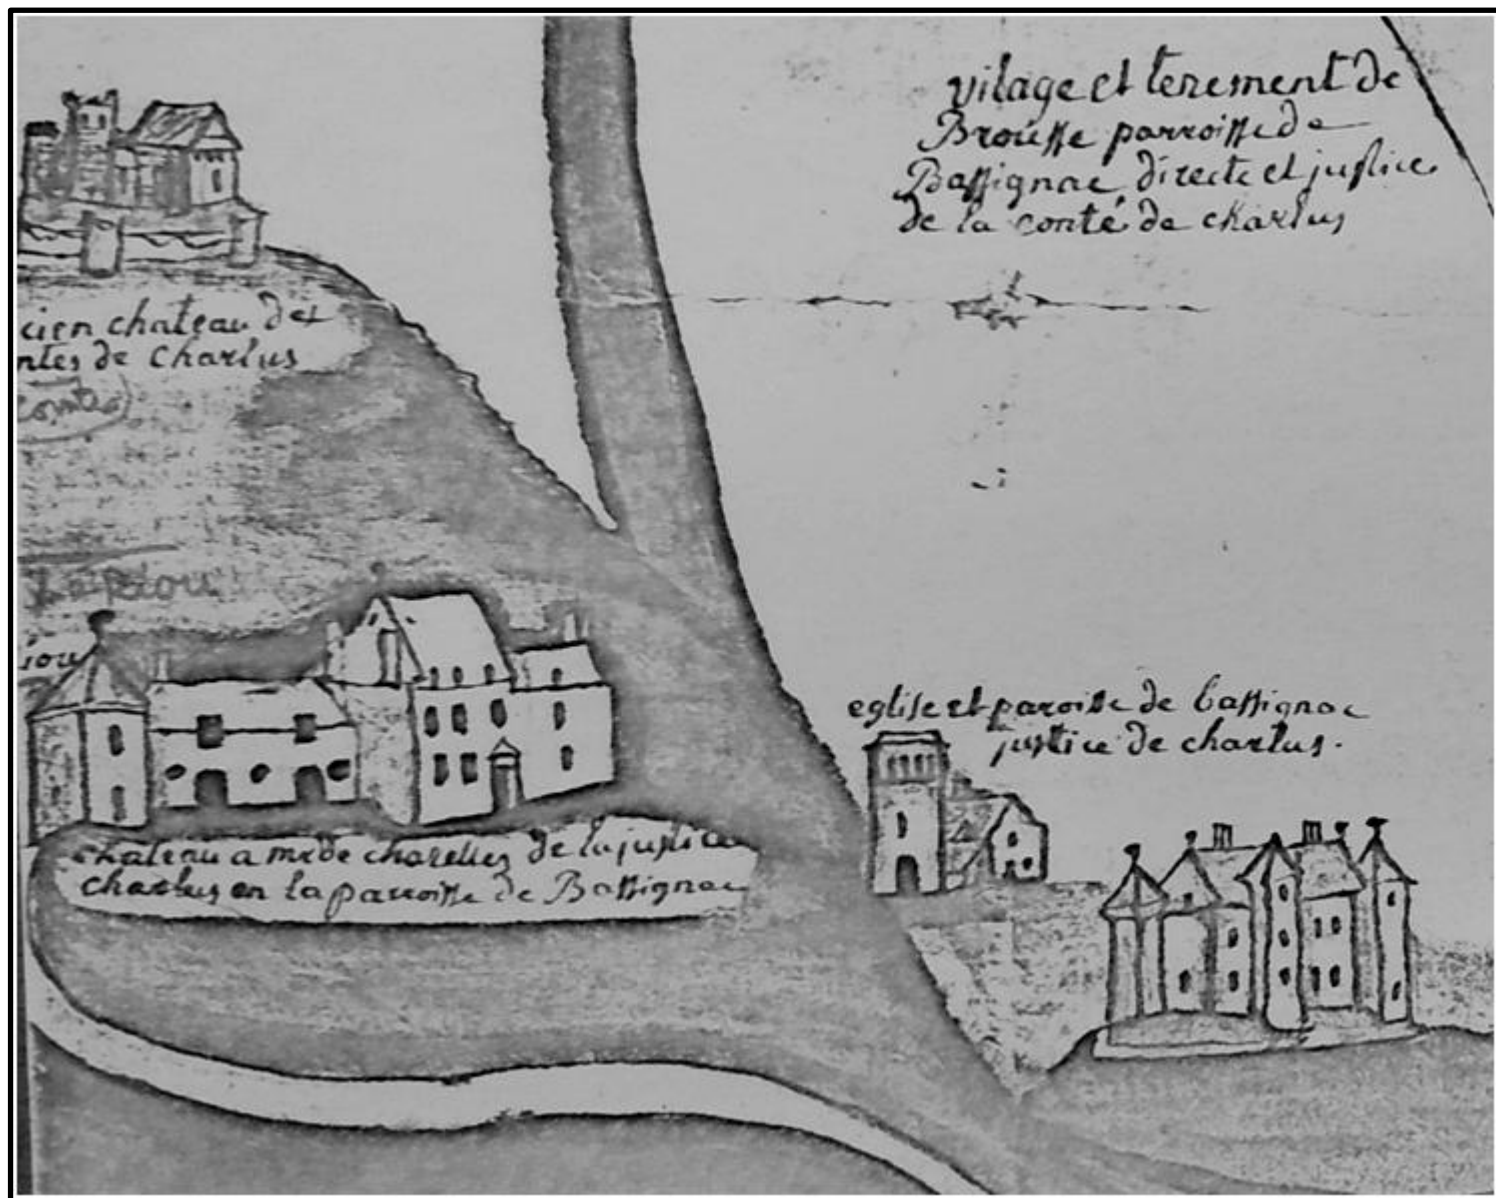 vilage et tenement de
Brousse parroisse de
Bassignac directe et justice
de la conté de charlus
cien chateau des
ntes de charlus
comtes)
iou
eglise et paroisse de bassignac
justice de charlus.
chateau a mr de chazelles de la justice
charlus en la parroisse de Bassignac